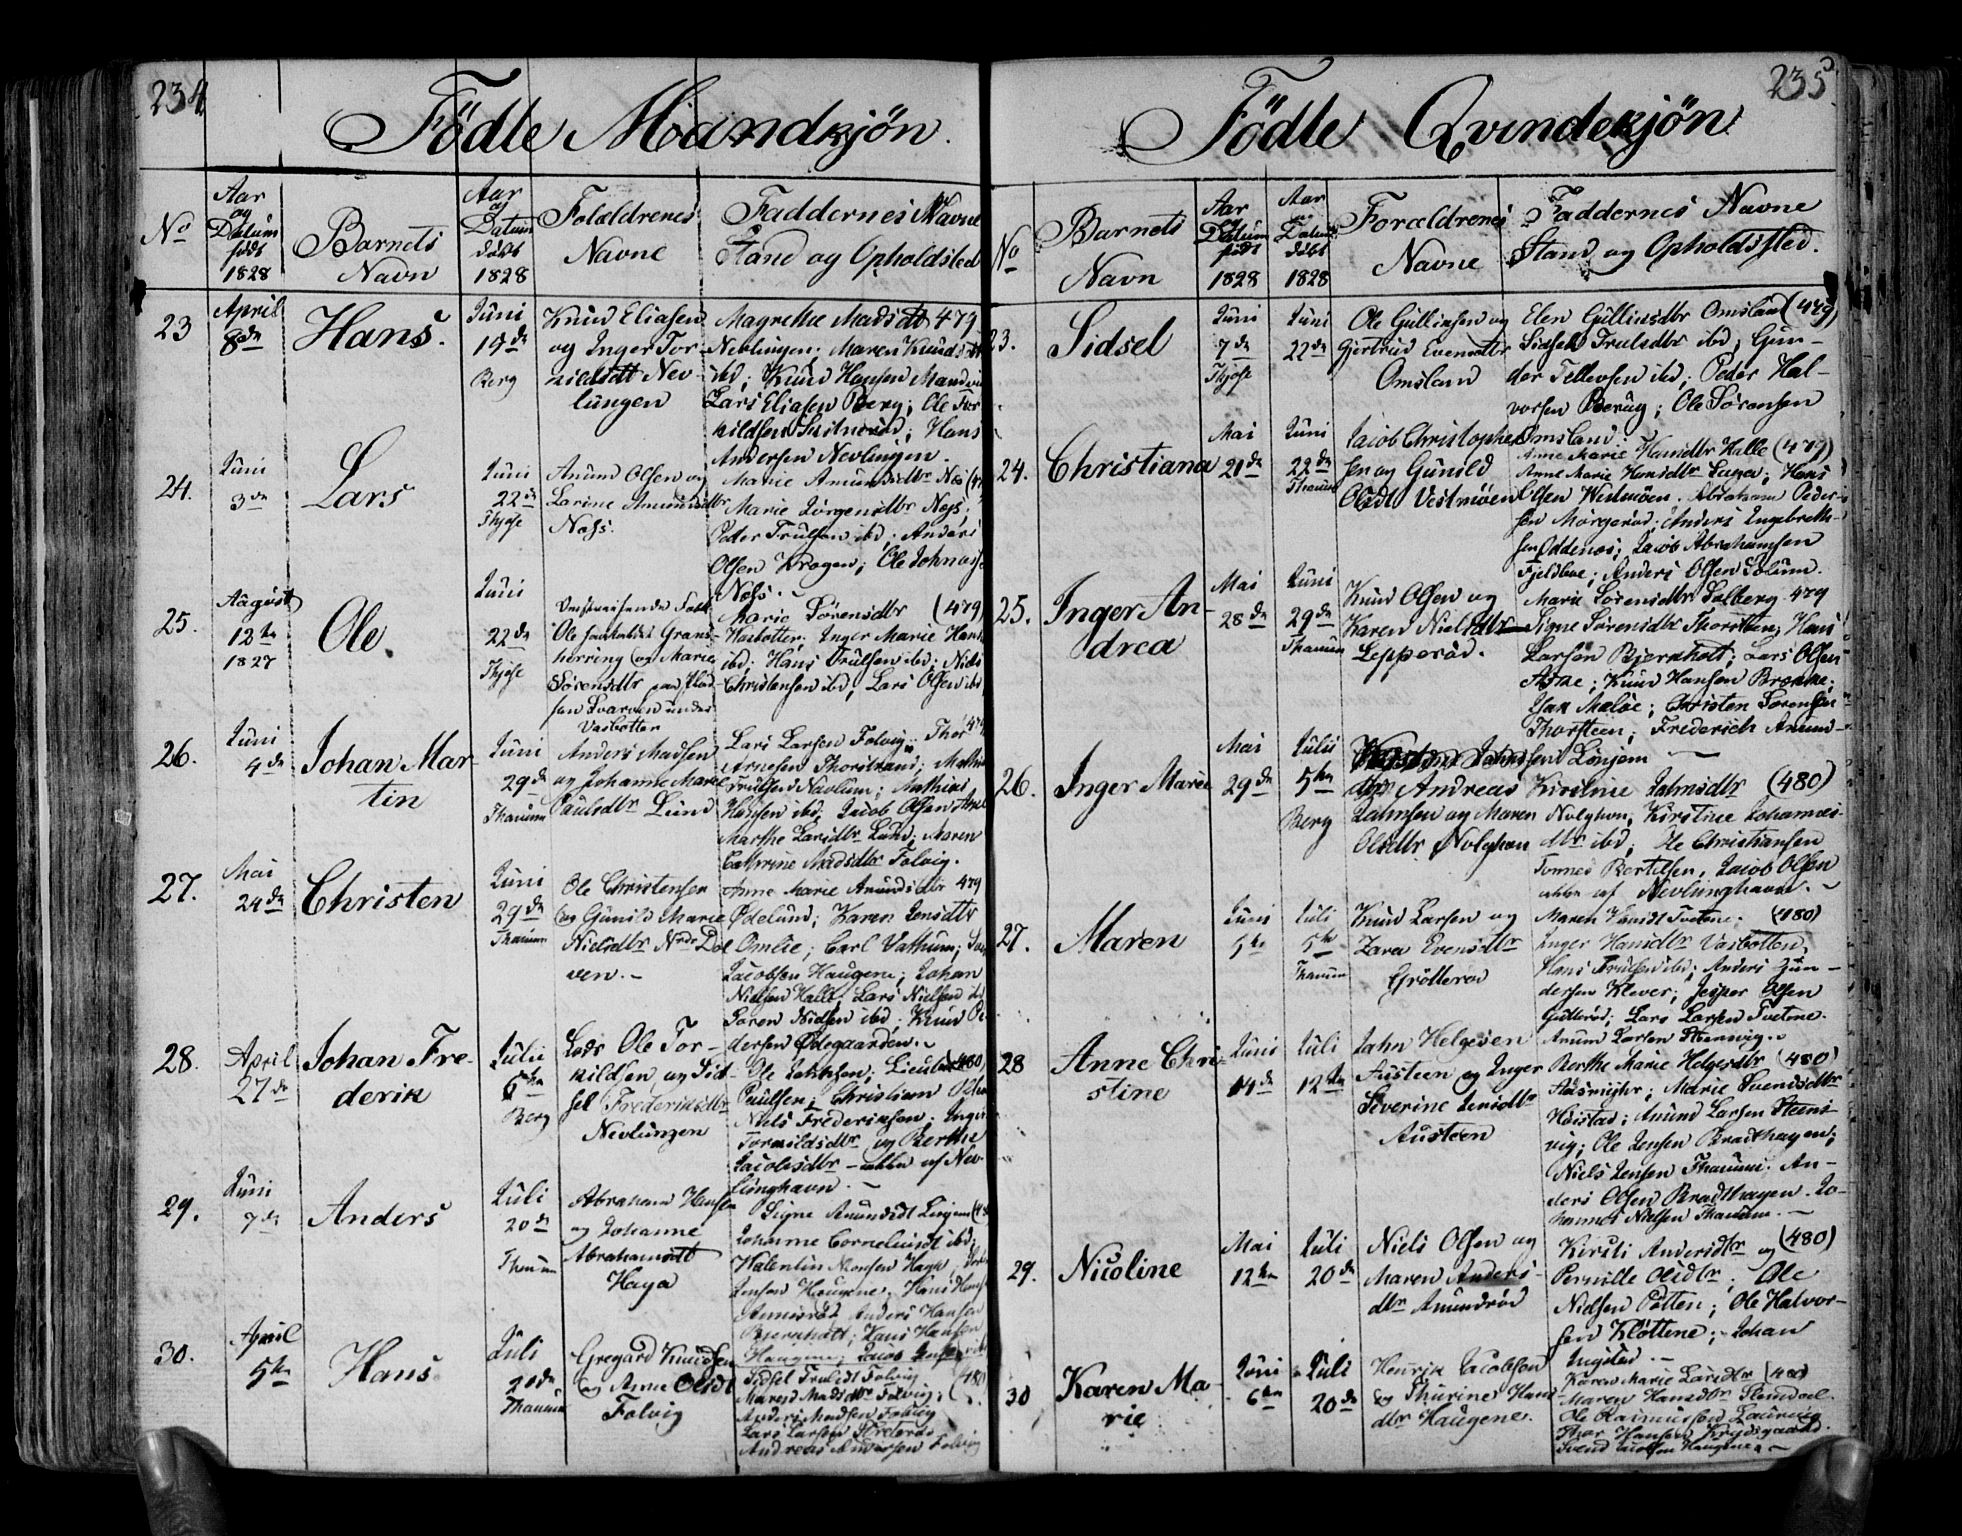 234
Födte Mandkjön.
No
Aar og Datum født 1828
Barnets Navn
Aar og Datum døbt 1828
Forældrenes Navne
Faddernes Navne Stand og Opholdsted
23
April 8de
Hans.
Juni 15de Berg
Knud Eliasen
og Inger Tor-
kildsdt Nev-
lungen
Magrethe Madsdt 479
Nevlungen; Maren Knudsdt
ibd; Knud Hansen
Lars Eliasen Berg; Ole Tor-
kildsen; Hans
Andersen Nevlungen.
24.
Juni 3de
Lars
Juni 22de Thjose
Anund Olsen og
Larine Amundsdtr
Næs.
Marie Amundsdtr Næs
Marie Jørgensdtr Næs;
Peder Trulsen ibd; Anders
Olsen Krogen; Ole Johnass
Næs.
25.
August 12te 1827
Ole.
Juni 22de Thjose
Ole
og Marie
Sørensdtr
under
Vasbotten
Marie Sørensdtr (479)
Vasbotten; Inger Marie Hans
ibd; Hans Trulsen ibd; Niels
Christensen ibd; Lars Olsen ibd;
26.
Juni 4de
Johan Mar-
tin
Juni 29de Thanum
Anders Madsen
og Johanne Marie
Paulsdtr Lund
Lars Larsen Folvig; Thor 479
Arnesen Thorstrand;
Trulsen Navlum; Mathias
Hansen ibd; Jacob Olsen
Marthe Larsdtr Lund; Maren
Cathrine Madsdtr Folvig.
27.
Mai 24de
Christen
Juni 29de Thanum
Ole Christensen
og Gunild Marie
Nielsdtr Ndr Dol-
ven.-
Anne Marie Anundsdtr 479
Ødelund; Karen Jensdtr
Omlie; Carl Vathum;
Jacobsen Haugene; Johan
Nielsen Halle; Lars Nielsen ibd
Søren Nielsen ibd; Knud Pe-
dersen Ødegaarden.
28.
April 27de
Johan Fre-
derik
Julii 6te Berg
Lods Ole Tor-
kildsen og Sid-
sel Frederiksdtr
Nevlungen
Ole Johnsen; (480)
Paulsen; Christian
Niels Frederiksen; Inger
Torkildsdtr og Berthe
Jacobsdtr - alle af Nev-
lunghavn.
29.
Juni 7de
Anders
Juli 20de Thanum
Abraham Hansen
og Johanne
Abrahamsdt
Haga
Signe Amundsdt
Johanne Corneliusdt ibd;
Valentin Monsen Haga;
Jensen Haugene; Hans
Anders Hansen
Bjernholt; Hans Hansen
Haugene; Jacob
30.
April 5te
Hans
Juli 20de Thanum
Gregard Knudsen
og Anne Olsdt
Folvig
Sidsel Trulsdt Folvig
Maren Madsdtr Folvig; (480)
Anders Madsen Folvig
Lars Larsen
Andreas Andersen Folvig
235
Födte Qvindekjön
No
Barnets Navn
Aar og Datum født 1828
Aar og Datum døbt 1828
Forældrenes Navne
Faddernes Navne Stand og Opholdsted.
23.
Sidsel
Juni 7de Thjose
Juni 22de
Ole Gulliksen og
Gjertrud Evensdtr
Omsland
Elen Gulliksdtr Omsland (479)
Sidsel Trulsdtr ibd; Gun-
der Tellevsen ibd; Peder Hal-
vorsen Berug; Ole Sørensen
Omsland.
24.
Christiana
Mai 21de
Juni 22de Thanum
Jacob Christopher-
sen og Gunild
Olsdt Vestmøen
Anne Marie Hansdtr Halle (479)
Anne Marie Hansdtr; Hans
Olsen Westmøen; Abraham Peder-
sen Mørgerød; Anders Engebreth-
sen Oddenæs; Jacob Abrahamsen
Fjeldbue; Anders Olsen Solum.
25.
Inger An-
drea
Mai 28de
Juni 29de Thanum
Knud Olsen og
Karen Nielsdtr
Lepperød.
Marie Sørensdtr Solberg 479
Signe Sørensdtr Thorsteen; Hans
Larsen Bjernholt; Lars Olsen
Aske; Knud Hansen Brække;
Jan Maløe; Christen Sørensen
Thorsteen; Frederich Amund-
sen Lønjem
26.
Inger Marie
Mai 29de
Julii 5te Berg
Andreas
Jahnsen og Maren
Olsdtr Nvlghvn
Kirstine Jahnsdtr (480)
Nvlghvn; Kirstine Johannes-
dtr ibd; Ole Christiansen
Tønnes Bertelsen, Jacob Olsen
alle af Nevlunghavn.
27.
Maren
Juni 5te
Juli 5te Thanum
Knud Larsen og
Zara Evensdtr
Grøtterød
Maren Knudsdt Tvetene. (480)
Inger Hansdtr Vasbotten,
Hans Trulsen ibd; Anders Gun-
dersen Klever; Jesper Olsen
; Lars Larsen Tvetene.
Anum Larsen Steensvig.
28
Anne Chri-
stine
Juni 14de
Juli 12te
Jahn Helgesen
Austeen og Inger
Severine Jensdtr
Austeen
Berthe Marie Helgesdtr (480)
; Marie Svendsdtr
Høistad; Anund Larsen Steens-
vig; Ole Jensen Bradthagen;
Niels Jensen Thanum. An-
ders Olsen Bradthagen. Jo-
hannes Nielsen Thanum.
29.
Nicoline
Mai 12te
Juli 20de
Niels Olsen og
Maren Anders-
dtr Amundrød
Kirsti Andersdtr og (480)
Pernille Olsdtr; Ole
Nielsen Potten; Ole Halvor-
sen Kløttene; Johan
Ingstad.
30
Karen Ma-
rie
Juni 6te
Juli 20de
Henrik Jacobsen
og Thurine Hans-
dtr Haugene.
Karen Marie Larsdtr (480)
Maren Hansdtr Stendal
Ole Rasmussen Laurvig
Thor Hansen Krydsgaard
Svend Jacobsen Haugene.